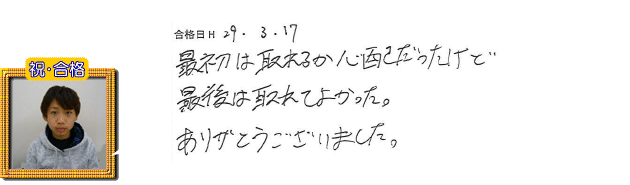 合格日H 29. 3. 17
祝・合格
最初は取れるか心配だったけど
最後は取れてよかった。
ありがとうございました。